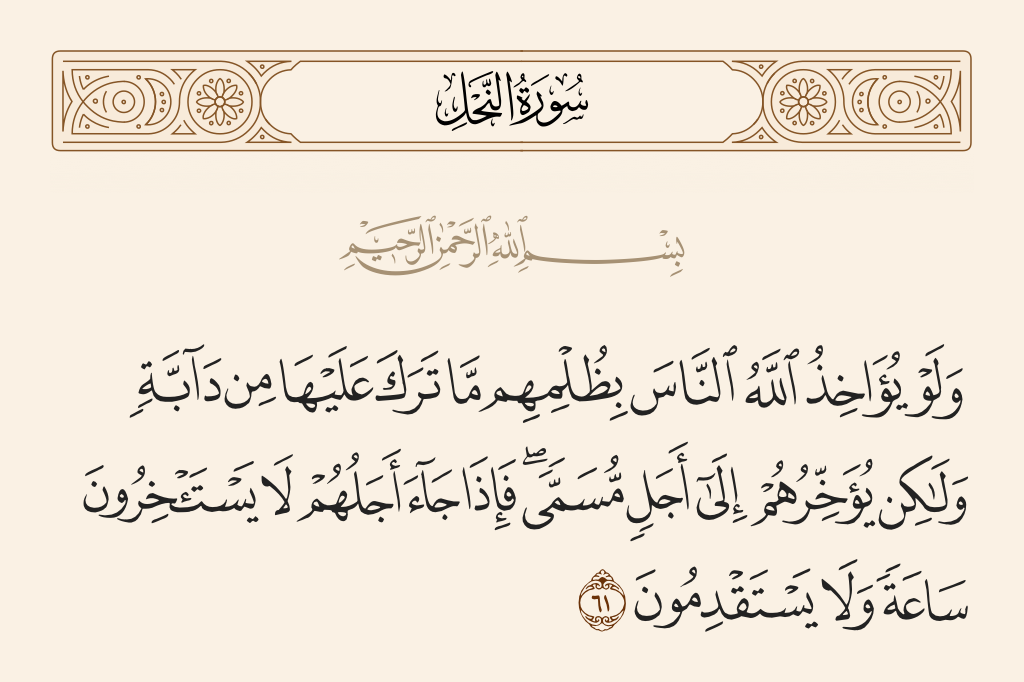 سُورَةُ النَّحْلِ
بِسْمِ ٱللَّهِ ٱلرَّحْمَٰنِ ٱلرَّحِيمِ
وَلَوْ يُؤَاخِذُ ٱللَّهُ ٱلنَّاسَ بِظُلْمِهِم مَّا تَرَكَ عَلَيْهَا مِن دَآبَّةٍ
وَلَٰكِن يُؤَخِّرُهُمْ إِلَىٰٓ أَجَلٍ مُّسَمًّى ۖ فَإِذَا جَآءَ أَجَلُهُمْ لَا يَسْتَـْٔخِرُونَ
سَاعَةً وَلَا يَسْتَقْدِمُونَ ٦١